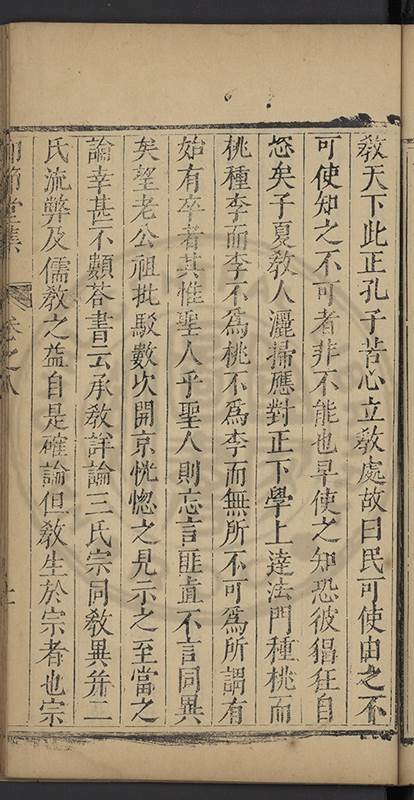 教天下此正孔子苦心立教處故曰民可使由之不
可使知之不可者非不能也早使之知恐彼猖狂自
恣矣子夏教人灑掃應對正下學上達法門種桃而
桃種李而李不為桃不為李而無所不可為所謂有
始有卒者其惟聖人乎聖人則忘言匪直不言同異
矣望老公祖批駁數次開京恍惚之見示之至當之
論幸甚不顯荅書云承教詳論三氏宗同教異并二
氏流弊及儒教之益自是確論但教生於宗者也宗
堂集
卷之八